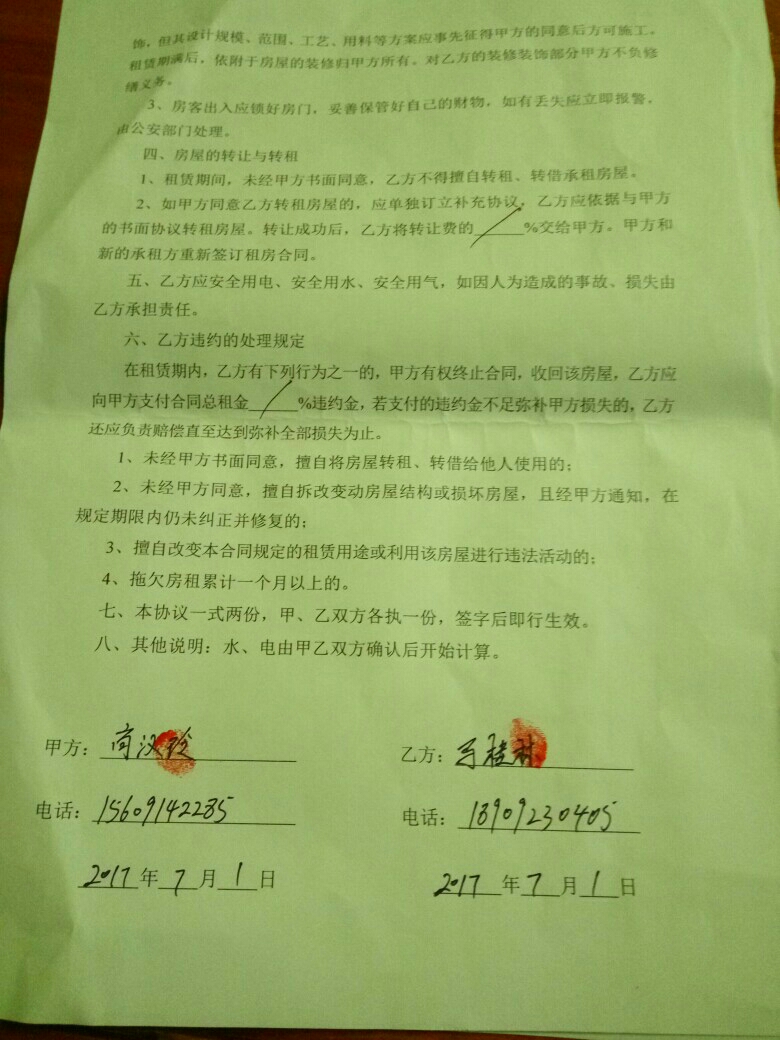 饰，但其设计规模、范围、工艺、用料等方案应事先征得甲方的同意后方可施工。
租赁期满后，依附于房屋的装修归甲方所有。对乙方的装修装饰部分甲方不负修
缮义务。
3、房客出入应锁好房门，妥善保管好自己的财物，如有丢失应立即报警，
由公安部门处理。
四、房屋的转让与转租
1、租赁期间，未经甲方书面同意，乙方不得擅自转租、转借承租房屋。
2、如甲方同意乙方转租房屋的，应单独订立补充协议，乙方应依据与甲方
的书面协议转租房屋。转让成功后，乙方将转让费的____%交给甲方。甲方和
新的承租方重新签订租房合同。
五、乙方应安全用电、安全用水、安全用气，如因人为造成的事故、损失由
乙方承担责任。
六、乙方违约的处理规定
在租赁期内，乙方有下列行为之一的，甲方有权终止合同，收回该房屋，乙方应
向甲方支付合同总租金____%违约金，若支付的违约金不足弥补甲方损失的，乙方
还应负责赔偿直至达到弥补全部损失为止。
1、未经甲方书面同意，擅自将房屋转租、转借给他人使用的；
2、未经甲方同意，擅自拆改变动房屋结构或损坏房屋，且经甲方通知，在
规定期限内仍未纠正并修复的；
3、擅自改变本合同规定的租赁用途或利用该房屋进行违法活动的；
4、拖欠房租累计一个月以上的。
七、本协议一式两份，甲、乙双方各执一份，签字后即行生效。
八、其他说明：水、电由甲乙双方确认后开始计算。
甲方： 乙方：
电话：15609142285 电话：18909230405
2017年7月1日 2017年7月1日